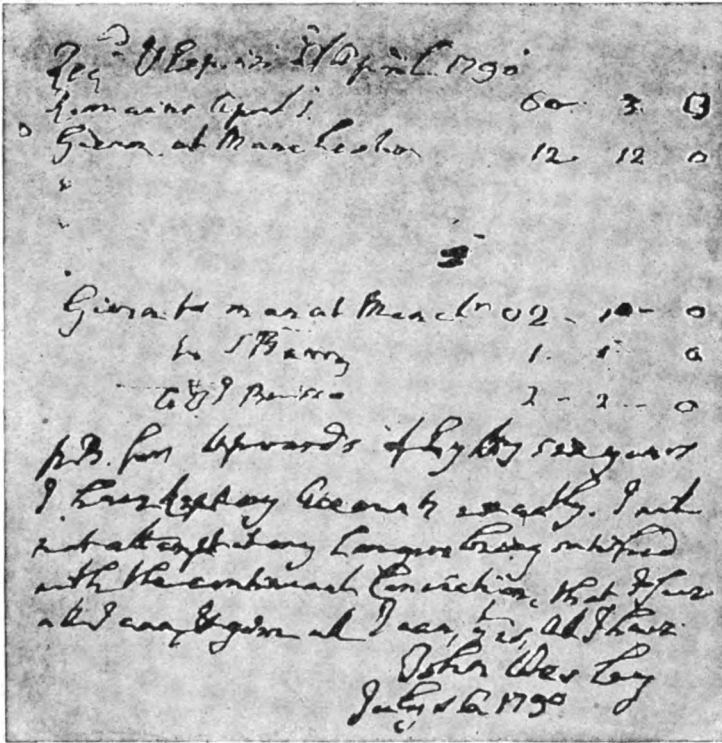 April 1790
Remains April 1. 60 3 0
Given at Manchester 12 12 0
Given to man at Manchr 02 - 10 - 0
to 1 1 0
to 2 - 2 - 0
N.B. For Upwards of Eighty six years
I have kept my Accounts exactly. I will
not attempt it any longer being satisfied
with the continual Conviction, that I save
all I can, & give all I can, yt is, All I have.
John Wesley
July 16 1790